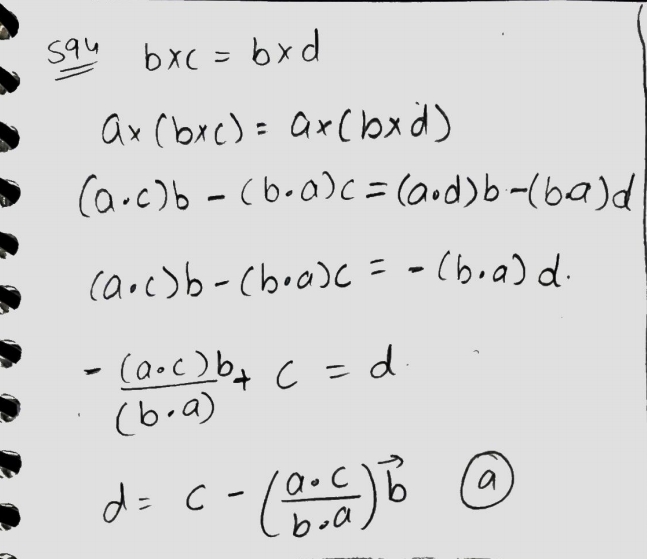 594 b×c = b×d
a×(b×c) = a×(b×d)
(a.c)b - (b.a)c = (a.d)b - (b.a)d
(a.c)b - (b.a)c = - (b.a) d.
- (a.c)b/(b.a) + c = d.
d = c - (a.c/b.a)b⃗ (a)